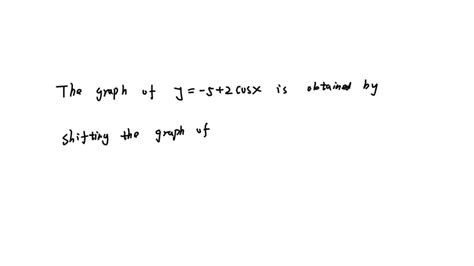 The graph of y = -5+2cosx is obtained by
shifting the graph of